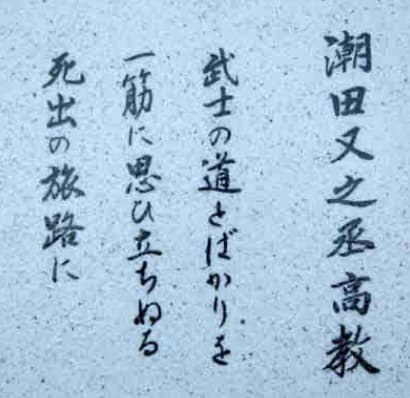 潮田又之丞高教
武士の道とばかりを
一筋に思ひ立ちぬる
死出の旅路に